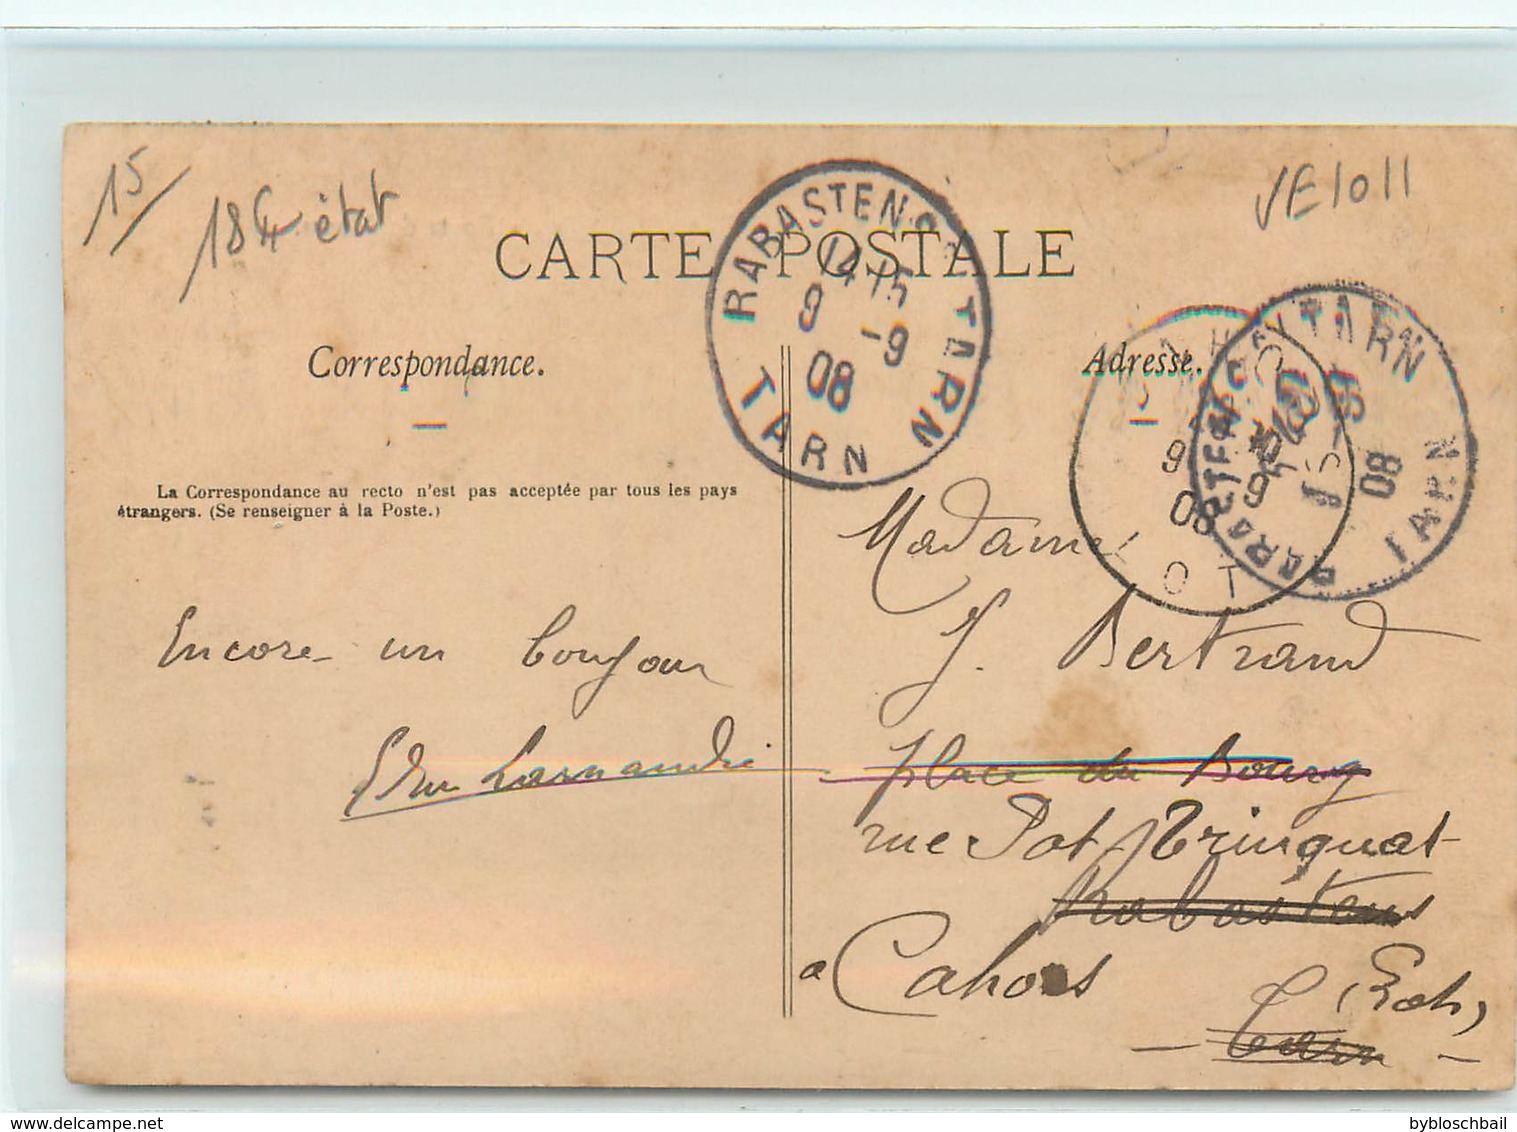 15/
18 état
VE1011
CARTE POSTALE
RABASTENS TARN
14 15
9 -9
08
TARN
Correspondance.
Adresse.
La Correspondance au recto n'est pas acceptée par tous les pays
étrangers. (Se renseigner à la Poste.)
9
08
LOT
TARN
08
TARN
Encore un bonjour
Madame
J. Bertrand
place du Bourg
rue Pot Trinquat
Rabastens
a Cahors
(Lot)
Tarn
delcampe.net
bybloschbail